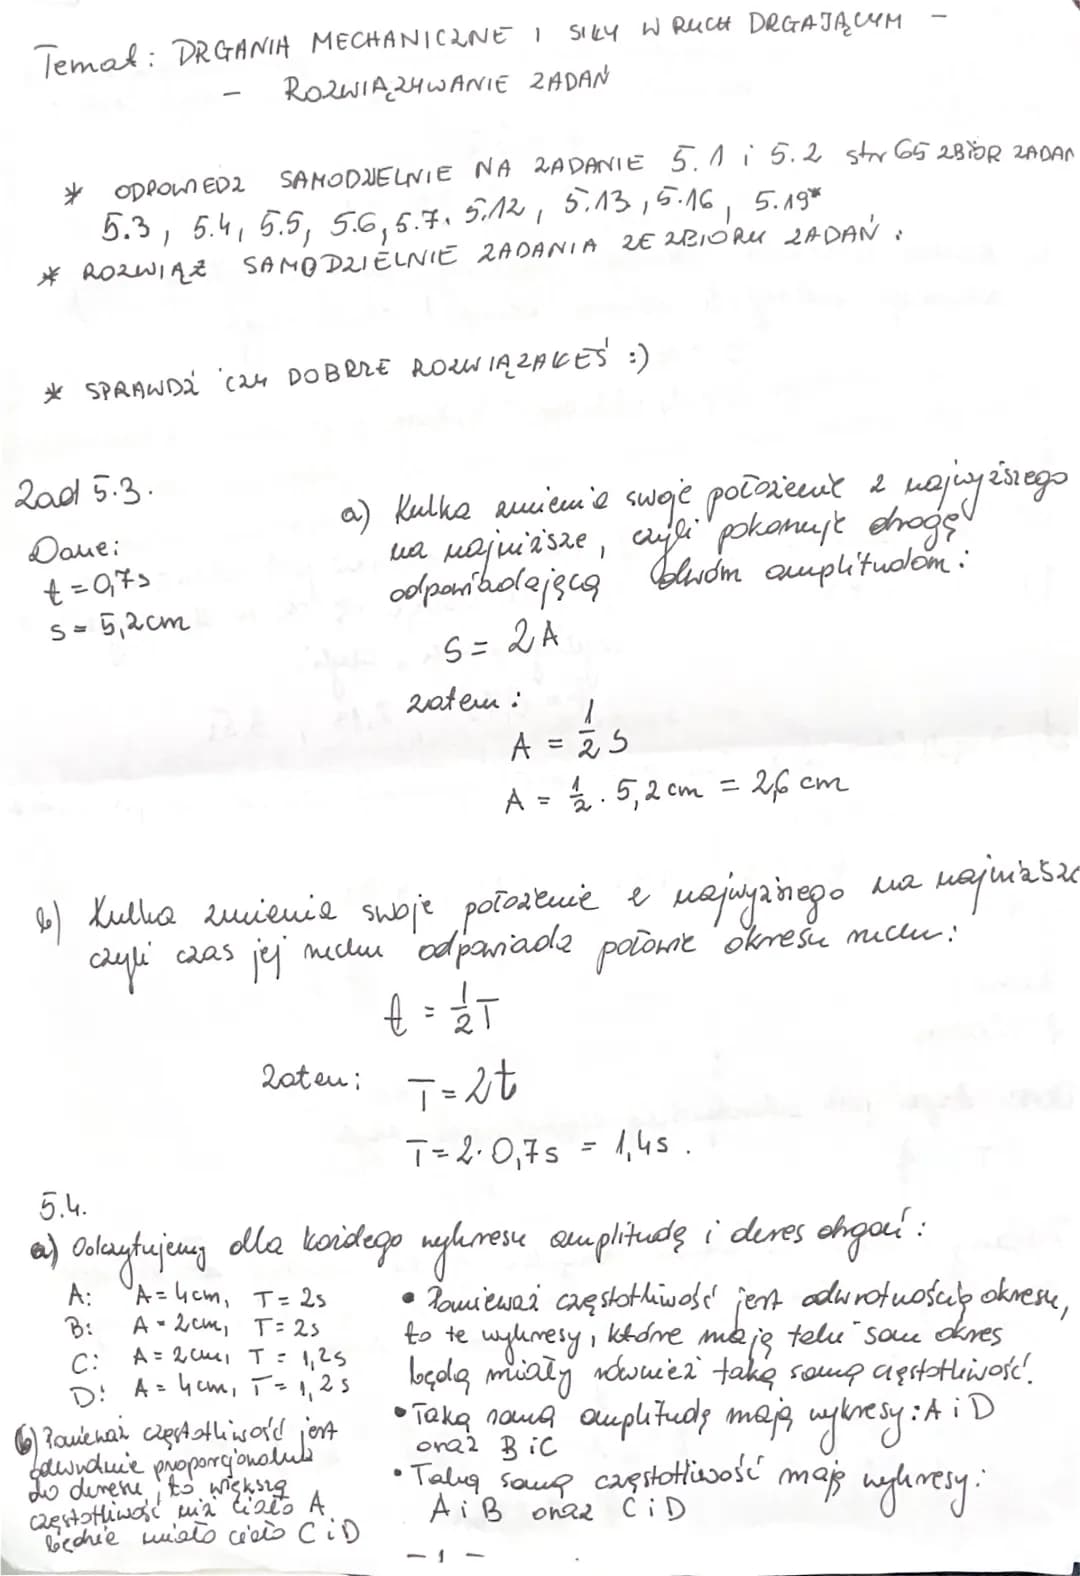 Temat: DRGANIA MECHANICZNE I SIŁY W RUCH DRGAJĄCYM -
- ROZWIĄZYWANIE ZADAŃ
* ODPOWIEDZ SAMODZIELNIE NA ZADANIE 5.1 i 5.2 str 65 ZBIÓR ZADAŃ
5.3, 5.4, 5.5, 5.6, 5.7, 5.12, 5.13, 5.16, 5.19*
* ROZWIĄŻ SAMODZIELNIE ZADANIA ZE ZBIORU ZADAŃ:
* SPRAWDŹ CZY DOBRZE ROZWIĄZAŁEŚ :)
Zad 5.3.
Dane:
t = 0,7s
s = 5,2cm
a) Kulka zmienia swoje położenie z najwyższego
na najniższe, czyli pokonuje drogę
odpowiadającą dwóm amplitudom:
s = 2A
zatem:
A = 1/2 s
A = 1/2 · 5,2cm = 2,6 cm
b) Kulka zmienia swoje położenie z najwyższego na najniższe
czyli czas jej ruchu odpowiada połowie okresu ruchu:
t = 1/2 T
Zatem: T = 2t
T = 2 · 0,7s = 1,4s.
5.4.
a) Odczytujemy dla każdego wykresu amplitudę i okres drgań:
A: A = 4cm, T = 2s
B: A = 2cm, T = 2s
C: A = 2cm, T = 1,2s
D: A = 4cm, T = 1,2s
• Ponieważ częstotliwość jest odwrotnością okresu,
to te wykresy, które mają taki sam okres
będą miały również taką samą częstotliwość.
• Taką samą amplitudę mają wykresy: A i D
oraz B i C
• Taką samą częstotliwość mają wykresy:
A i B oraz C i D
b) Ponieważ częstotliwość jest
odwrotnie proporcjonalna
do okresu, to większą
częstotliwość niż ciało A
będzie miało ciało C i D
- 1 -